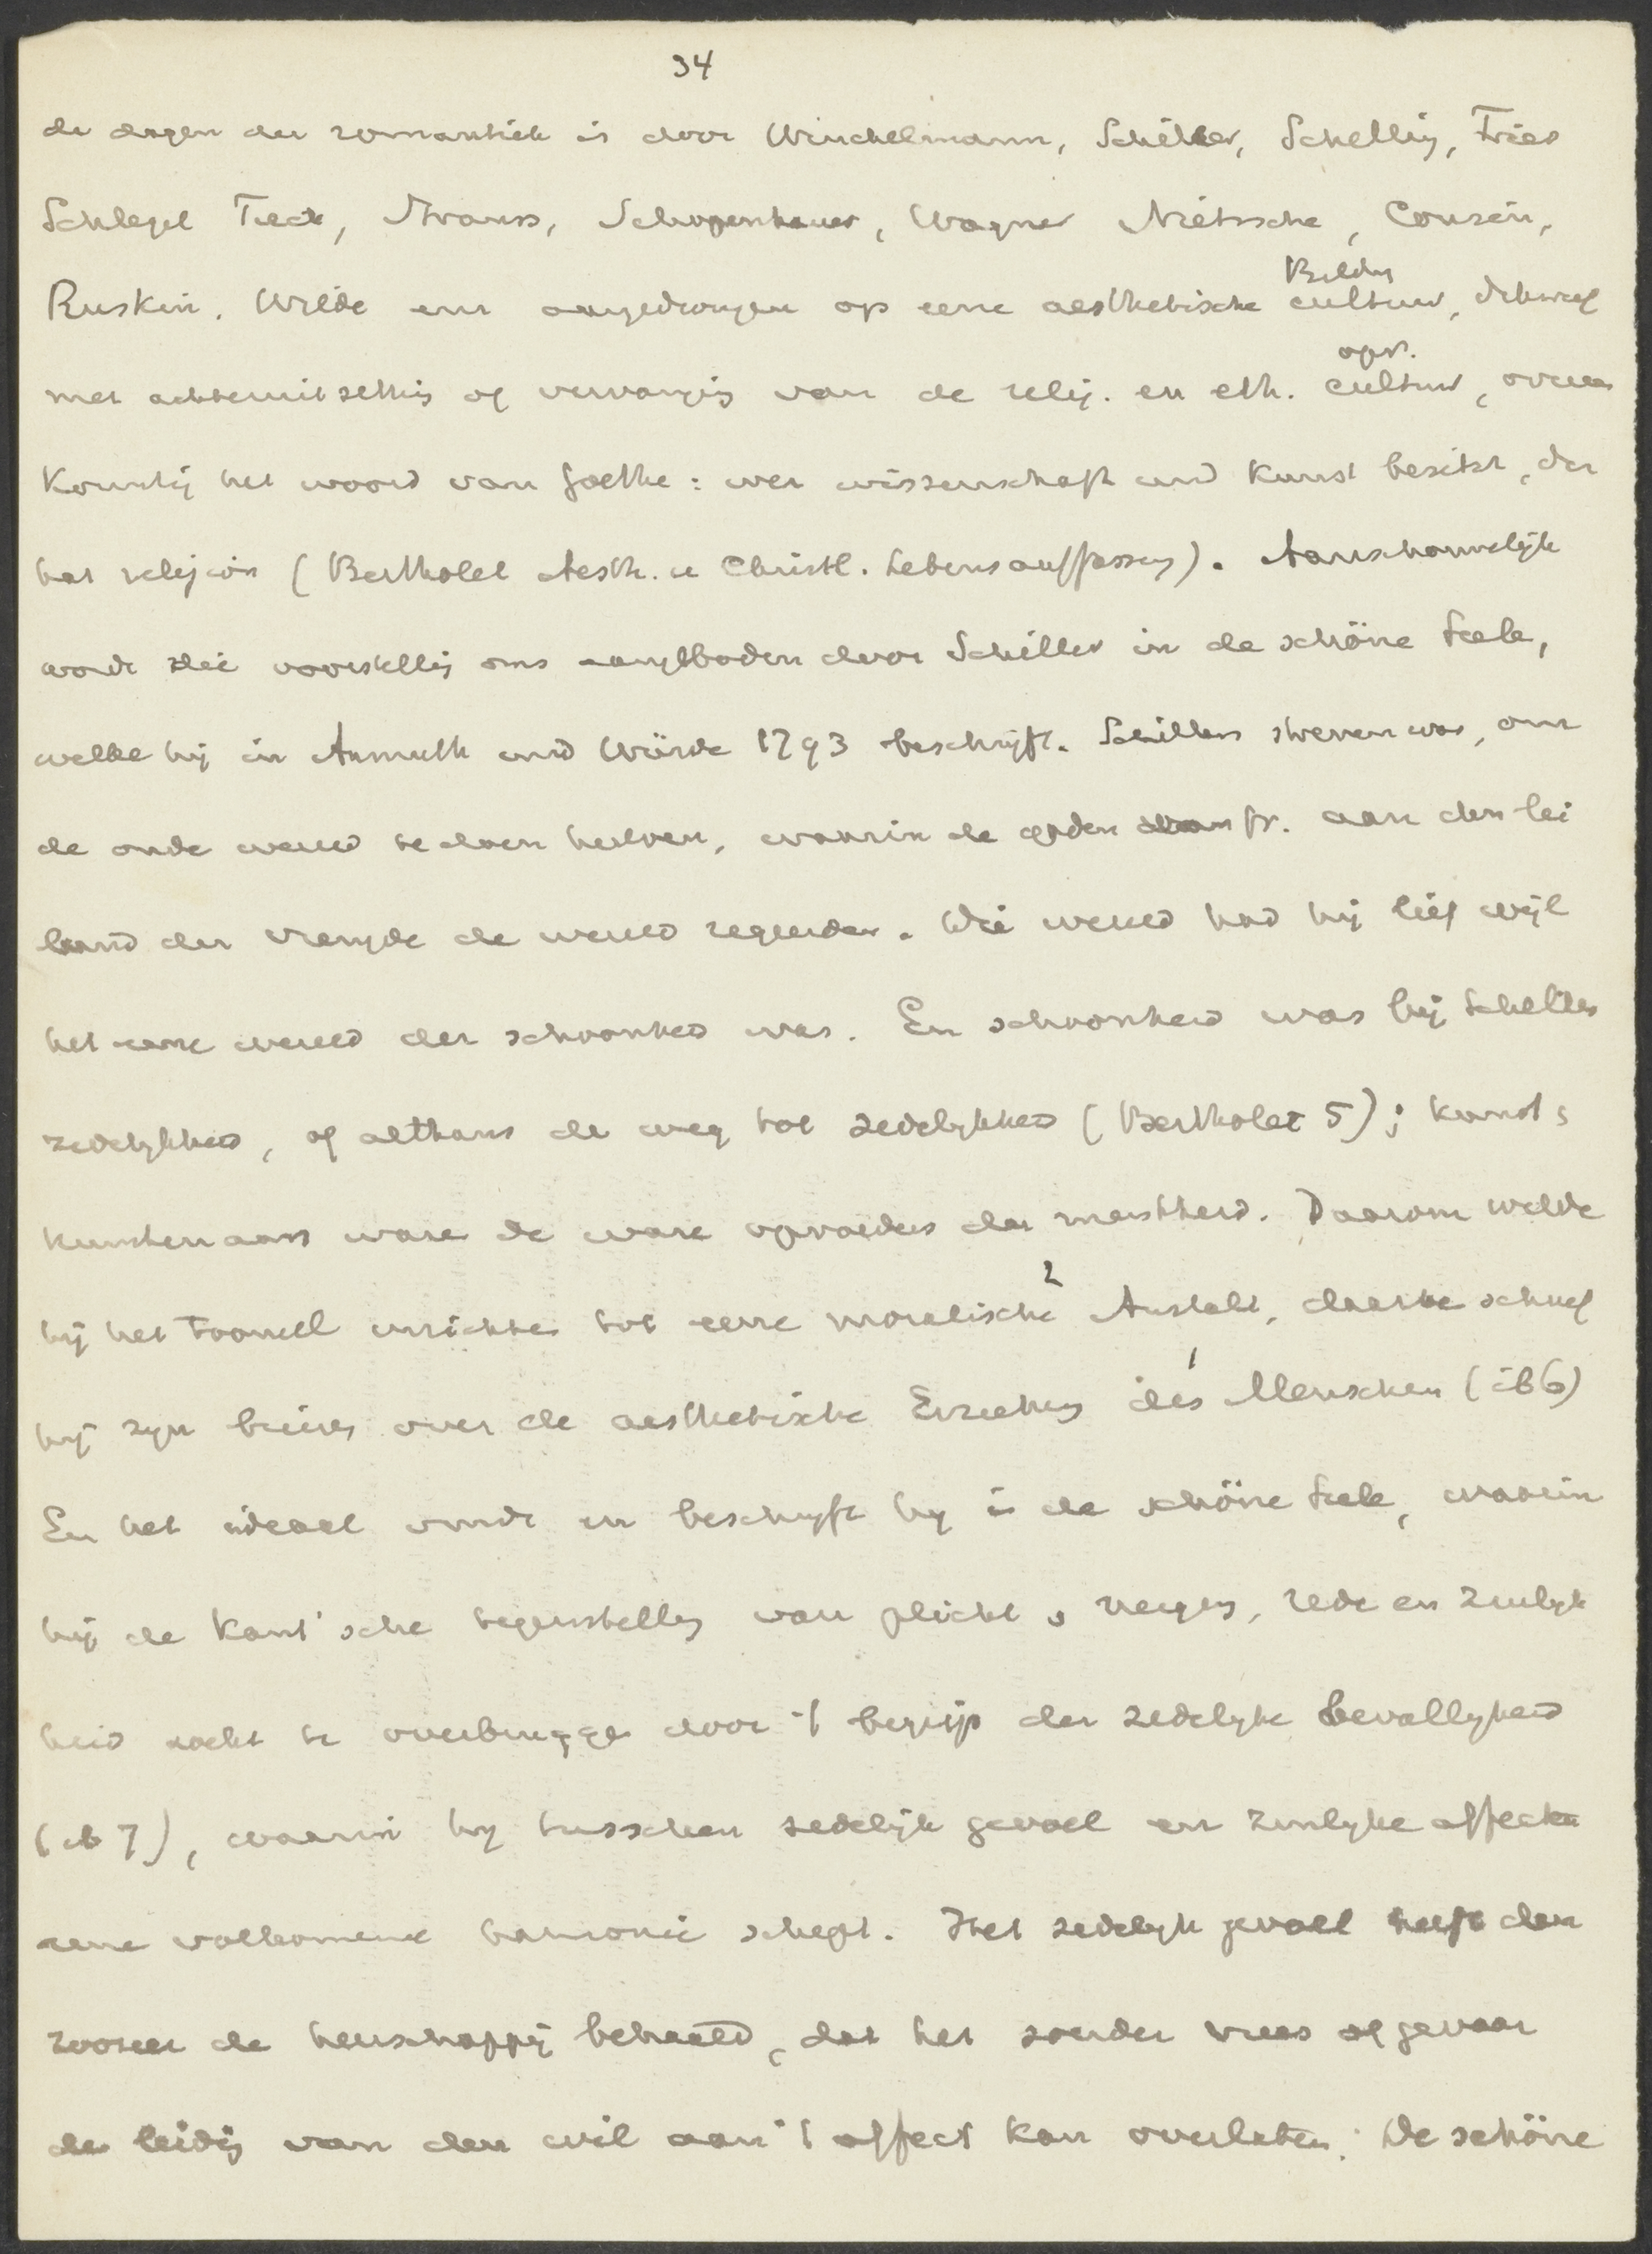 34
de dagen der romantiek is door Winckelmann, Schiller, Schelling, Fries
Schlegel Tieck, Strauss, Schopenhauer, Wagner Nietssche, Cousin,
Bildung
Ruskin, Wilde enz aangedrongen op eene aesthetische cultuur, dikwijls
opv.
met achteruitzetting of vervanging van de relig. en eth. cultuur, overeen
komstig het woord van Goethe: wer wissenschaft und Kunst besitzt, der
hat religion (Bertholet Aesth. u Christl. Lebensauffassung). Aanschouwelijk
wordt die voorstelling ons aangeboden door Schiller in de schöne Seele,
welke hij in Anmuth und Würde 1793 beschrijft. Schillers streven was, om
de oude wereld te doen herleven, waarin de goden aan den lei
band der vreugde de wereld regeerden. Die wereld had hij lief wijl
het eene wereld der schoonheid was. En schoonheid was bij Schiller
zedelijkheid, of althans de weg tot zedelijkheid (Bertholet 5); kunst,
kunstenaars waren de ware opvoeders der menschheid. Daarom wilde
2
hij het Tooneel inrichten tot eene moralische Anstalt, daartoe schreef
1
hij zijn brieven over de aesthetische Erziehung des Menschen (ib 6)
En het ideaal vindt en beschrijft hij in de schöne Seele, waarin
hij de Kant'sche tegenstelling van plicht en neiging, rede en zinlijk
heid zocht te overbruggen door 't begrip der zedelijke bevalligheid
(ib 7), waarin hij tusschen zedelijk gevoel en zinlijke affecten
eene volkomene harmonie schept. Het zedelijk gevoel heeft dan
zoozeer de heerschappij behaald, dat het zonder vrees of gevaar
de leiding van den wil aan 't affect kan overlaten. De schöne